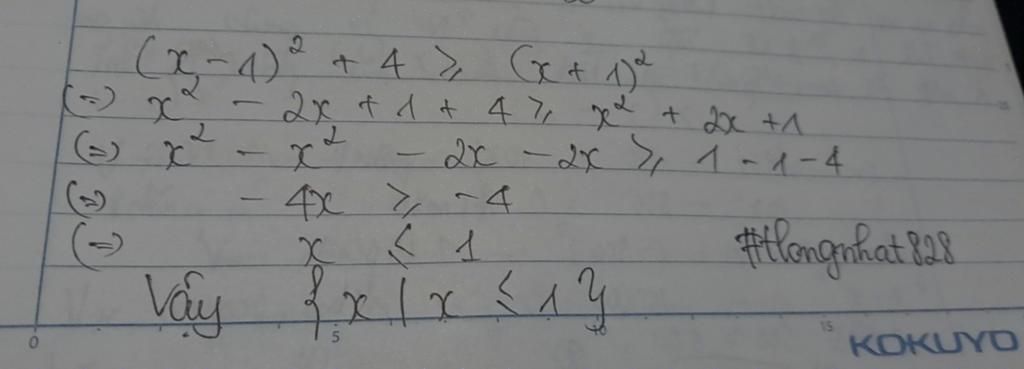 (x - 1)² + 4 ≥ (x + 1)²
(=) x² - 2x + 1 + 4 ≥ x² + 2x + 1
(=) x² - x² - 2x - 2x ≥ 1 - 1 - 4
(=) - 4x ≥ - 4
(=) x ≤ 1 #tlongnhat828
Vậy { x | x ≤ 1 }
0 5 10 15
KOKUYO